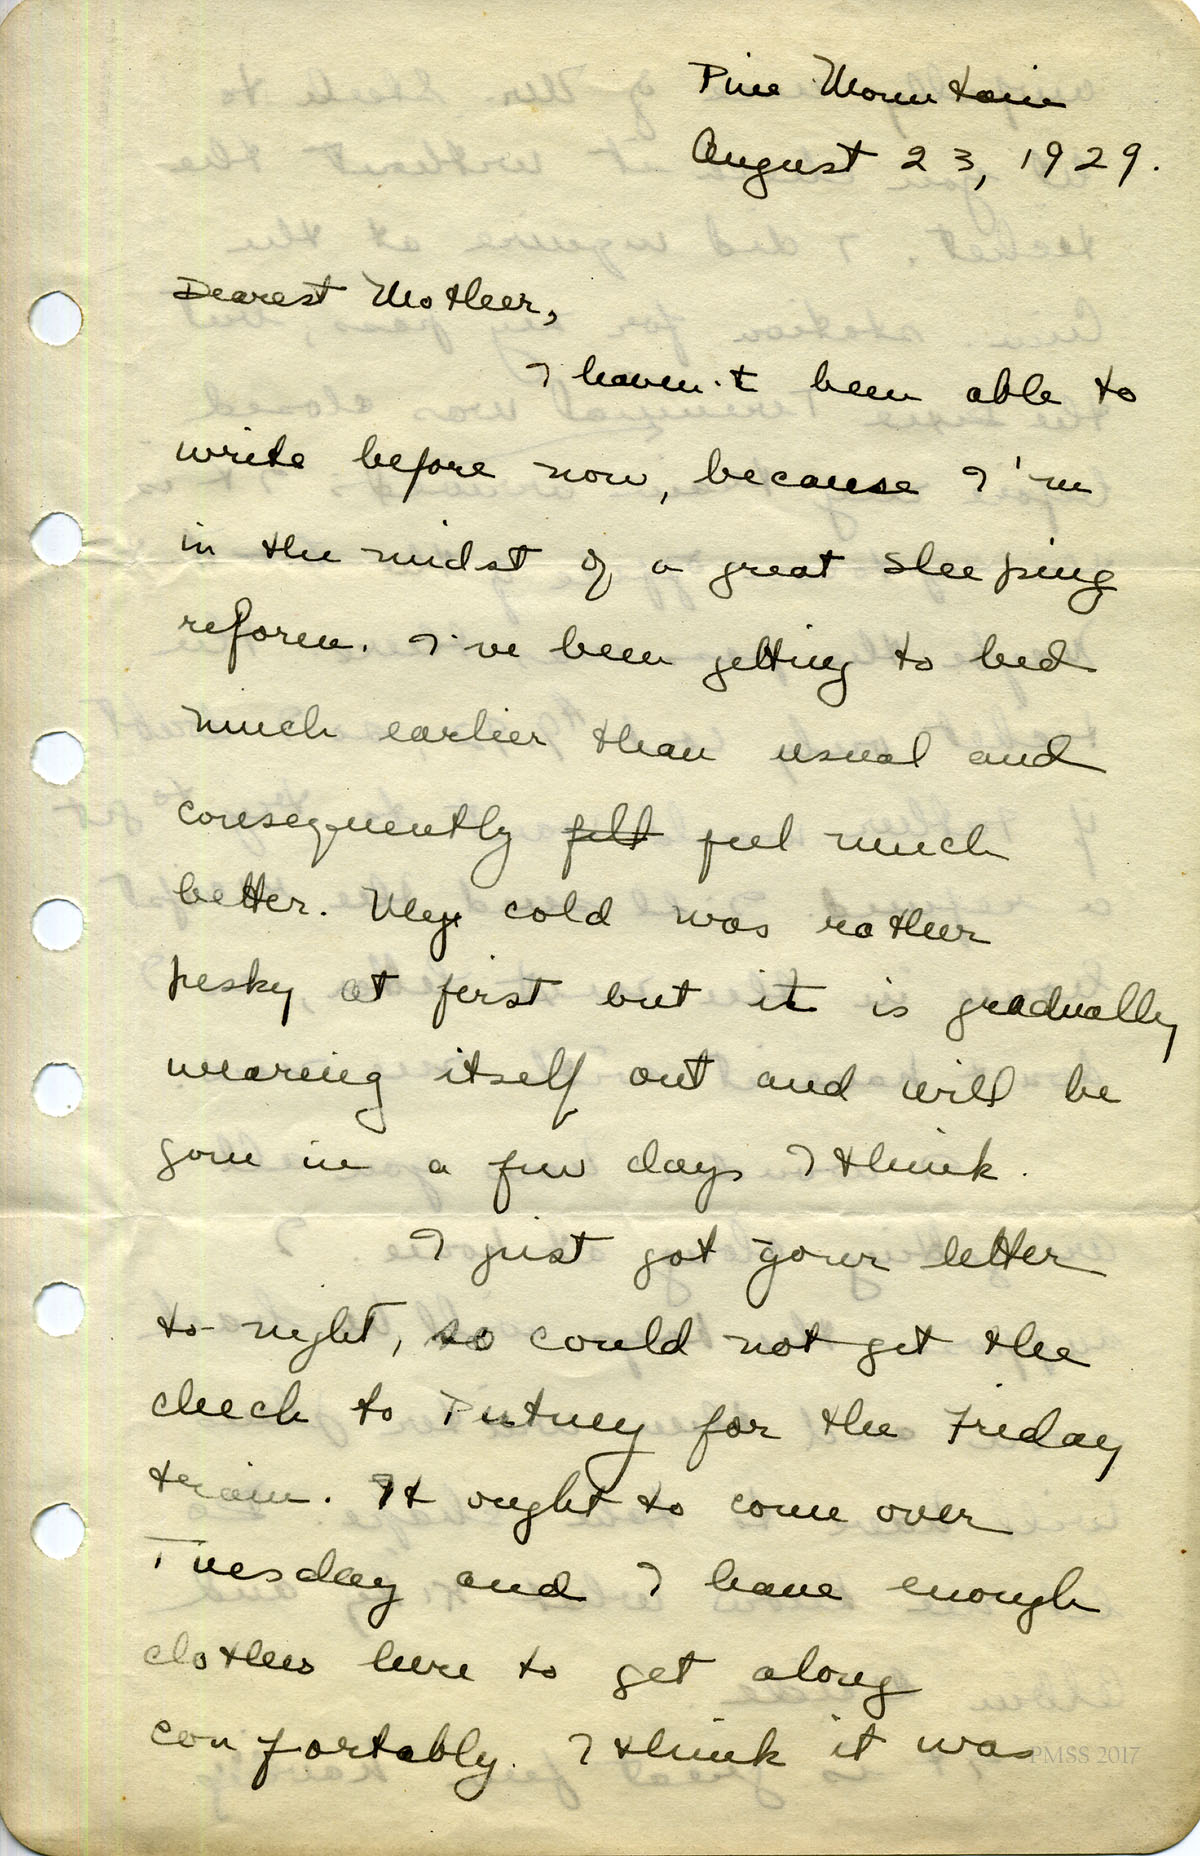 Pine Mountain
August 23, 1929.
Dearest Mother,
I haven't been able to
write before now, because I'm
in the midst of a great sleeping
reform. I've been getting to bed
much earlier than usual and
consequently felt feel much
better. My cold was rather
pesky at first but it is gradually
wearing itself out and will be
gone in a few days I think.
I just got your letter
to-night, so could not get the
check to Putney for the Friday
train. It ought to come over
Tuesday and I have enough
clothes here to get along
comfortably. I think it was
PMSS 2017